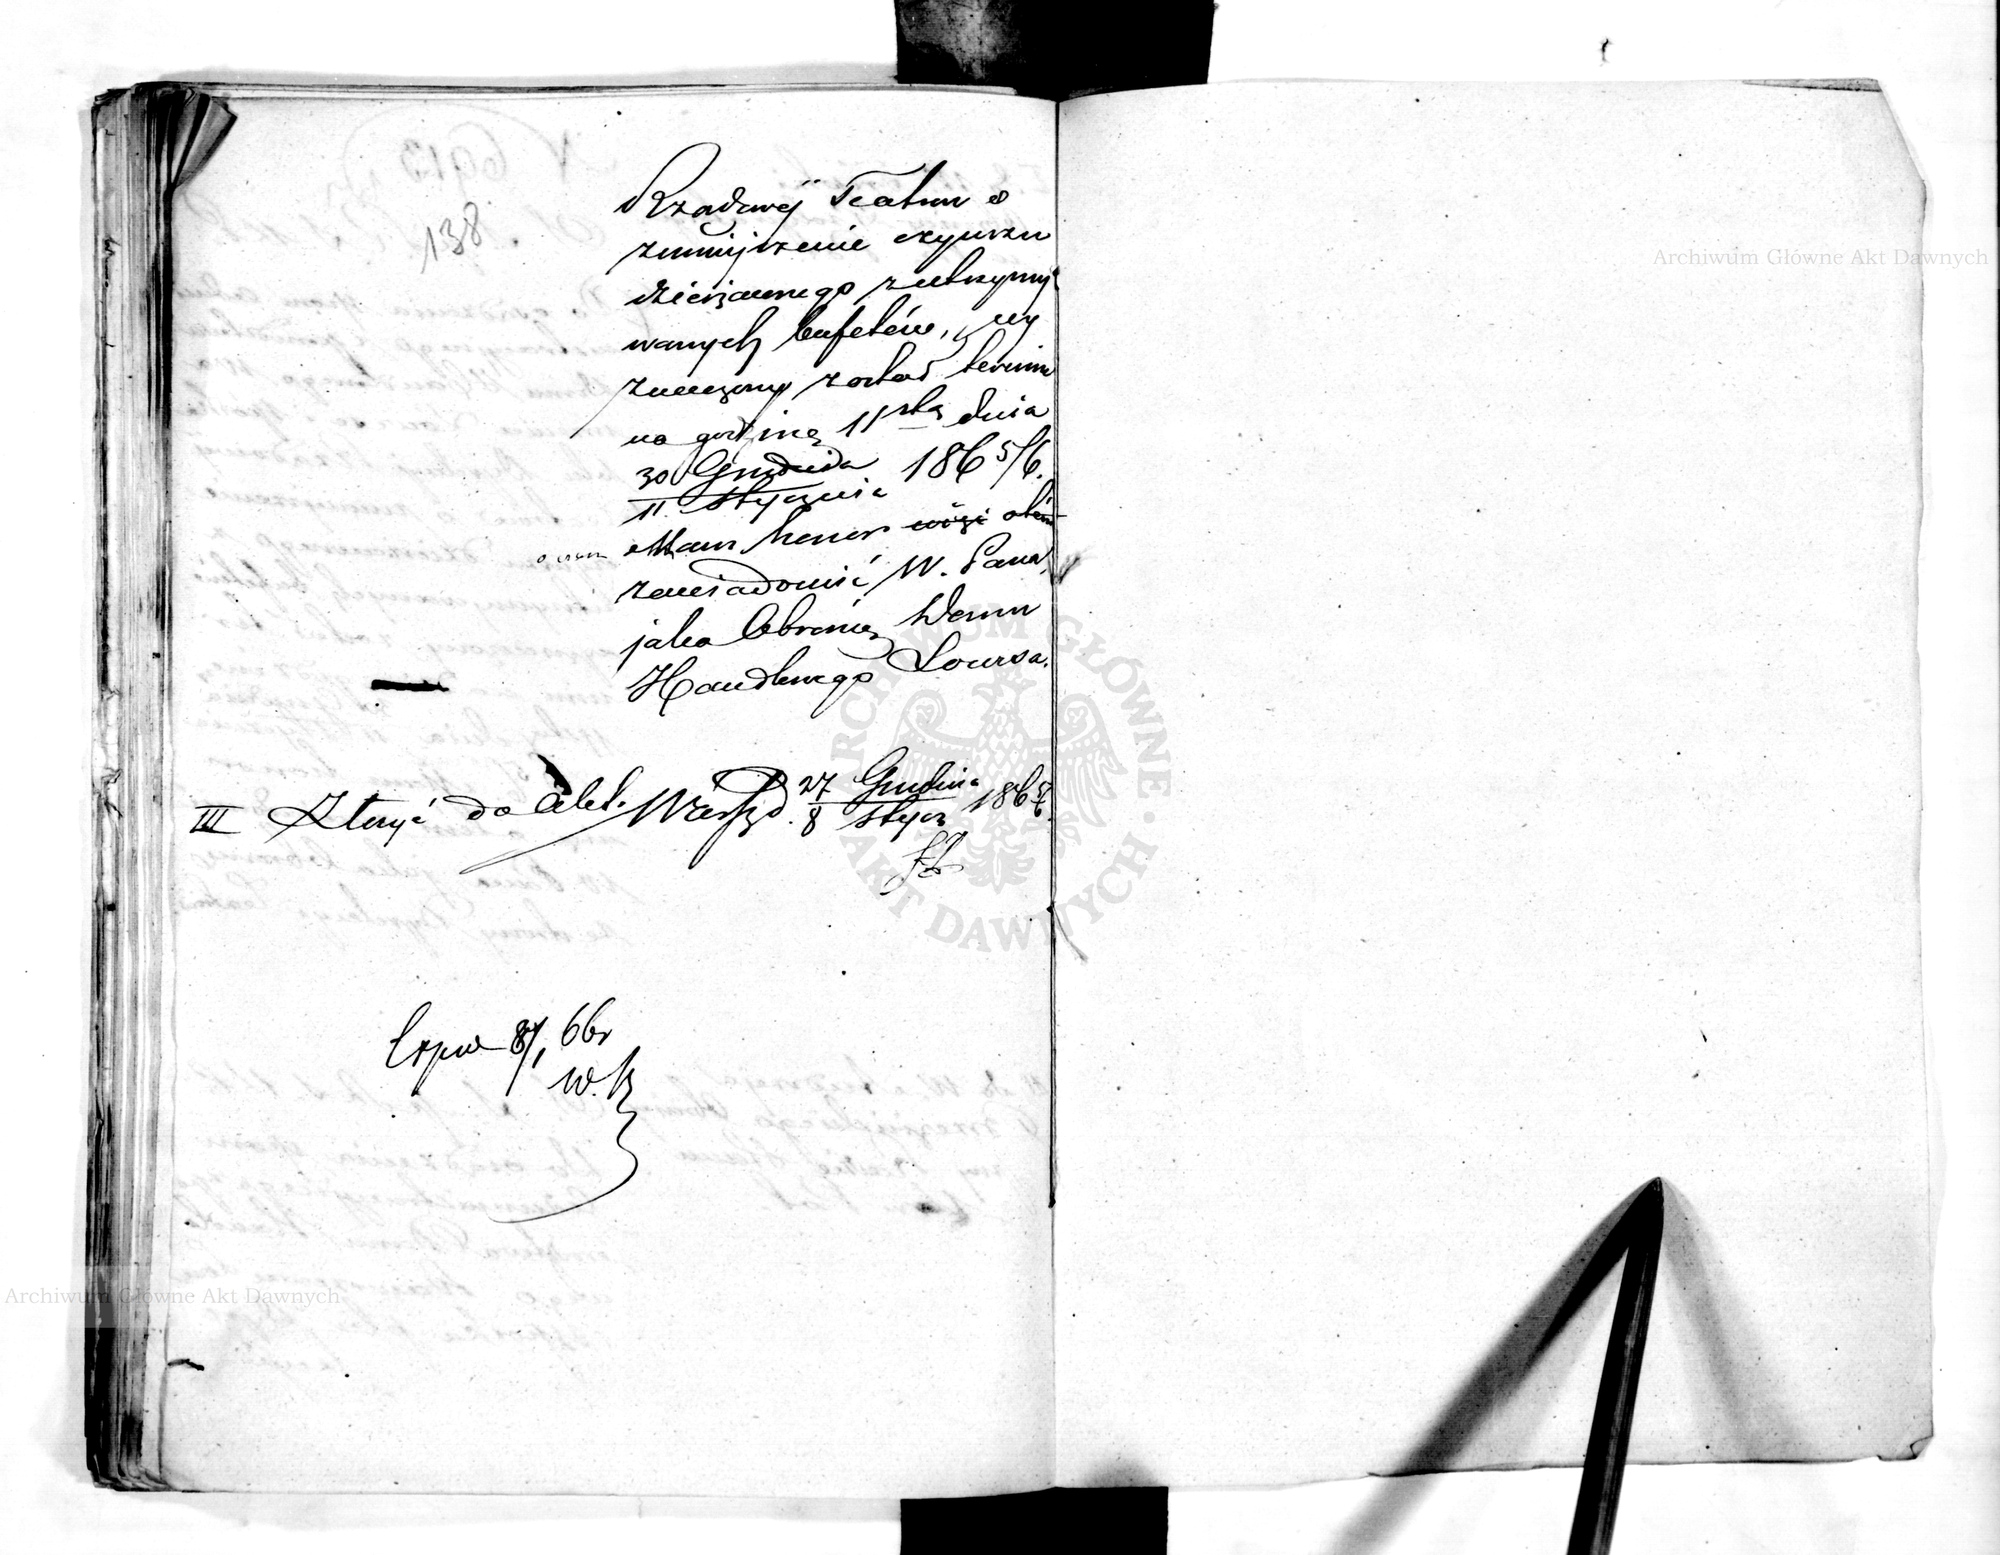 138
Rządowej Teatrów o
zmniejszenie czynszu
dzierżawnego z utrzymy-
wanych bufetów, wy
znaczony został termin
na godzinę 11stą dnia
30 Grudnia 1865/6.
11 Stycznia
o czem Mam honor
zawiadomić W. Pana,
jako Obrońcę Domu
Handlowego Loursa.
III Złożyć do Akt. Warsz d. 27 Grudnia 1865/6.
8 stycz
Exped 8/1 66r
W. K
Archiwum Główne Akt Dawnych
Archiwum Główne Akt Dawnych
ARCHIWUM GŁÓWNE AKT DAWNYCH